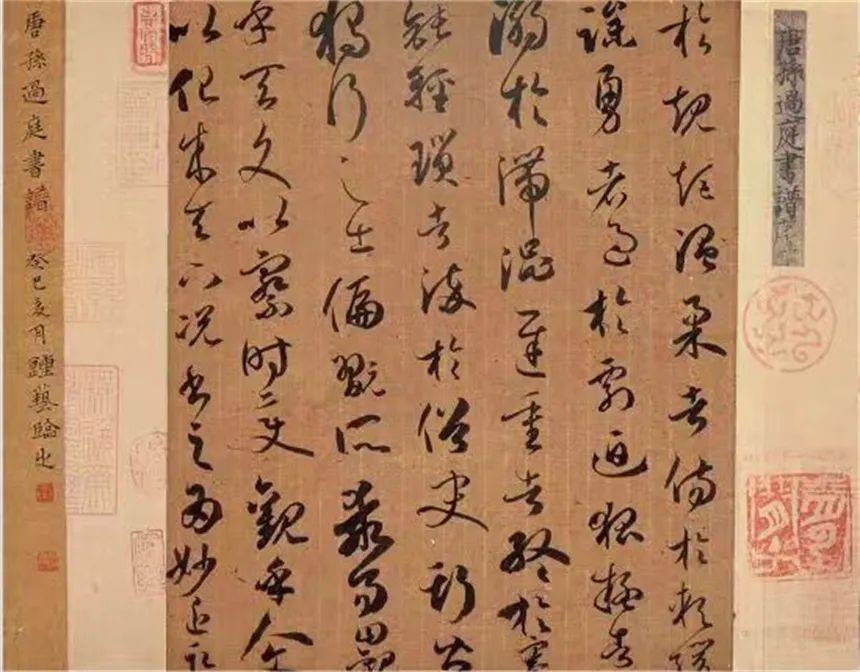 唐孫過庭書譜
於規矩溫柔者傷於軟緩
躁勇者過於剽迫狐疑者
溺於滯澀遲重者終於蹇
鈍輕瑣者淬於俗吏斯皆
獨行之士偏翫所乖易曰觀
乎天文以察時變觀乎人
以化成天下況書之為妙近取
唐孫過庭書譜 癸巳亥月 鍾藝臨之